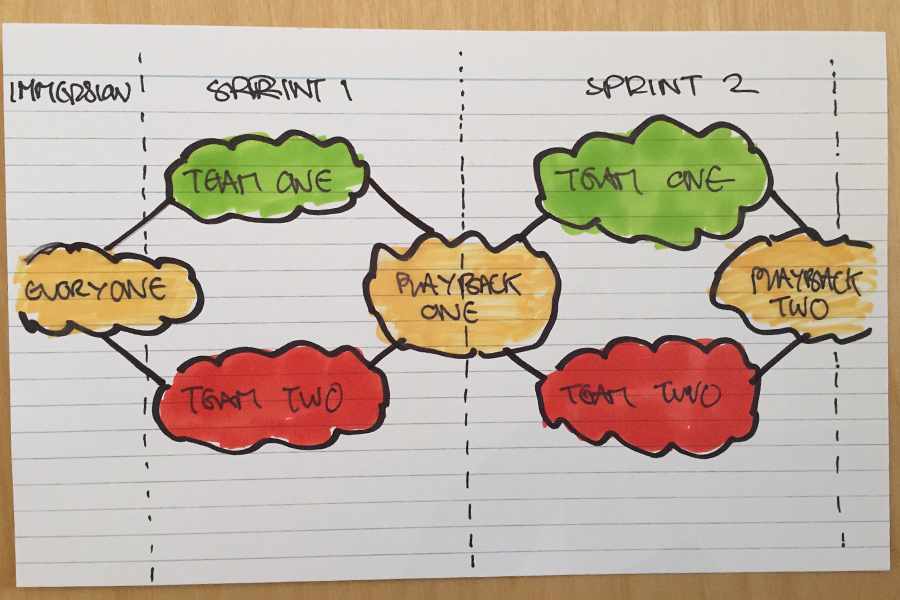 IMMERSION
SPRINT 1
SPRINT 2
TEAM ONE
TEAM ONE
EVERYONE
PLAYBACK
ONE
PLAYBACK
TWO
TEAM TWO
TEAM TWO